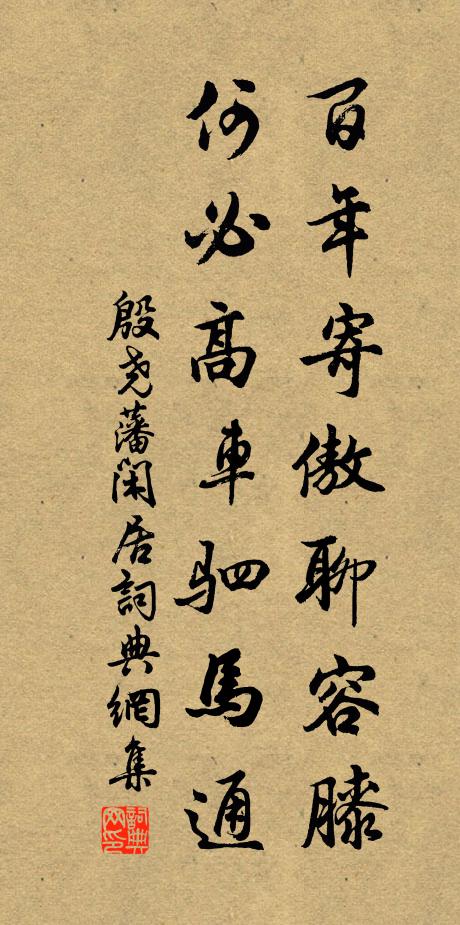 百年寄傲聊容膝
何必高車駟馬通
殷尧藩閑居詞典網集
詞典网印